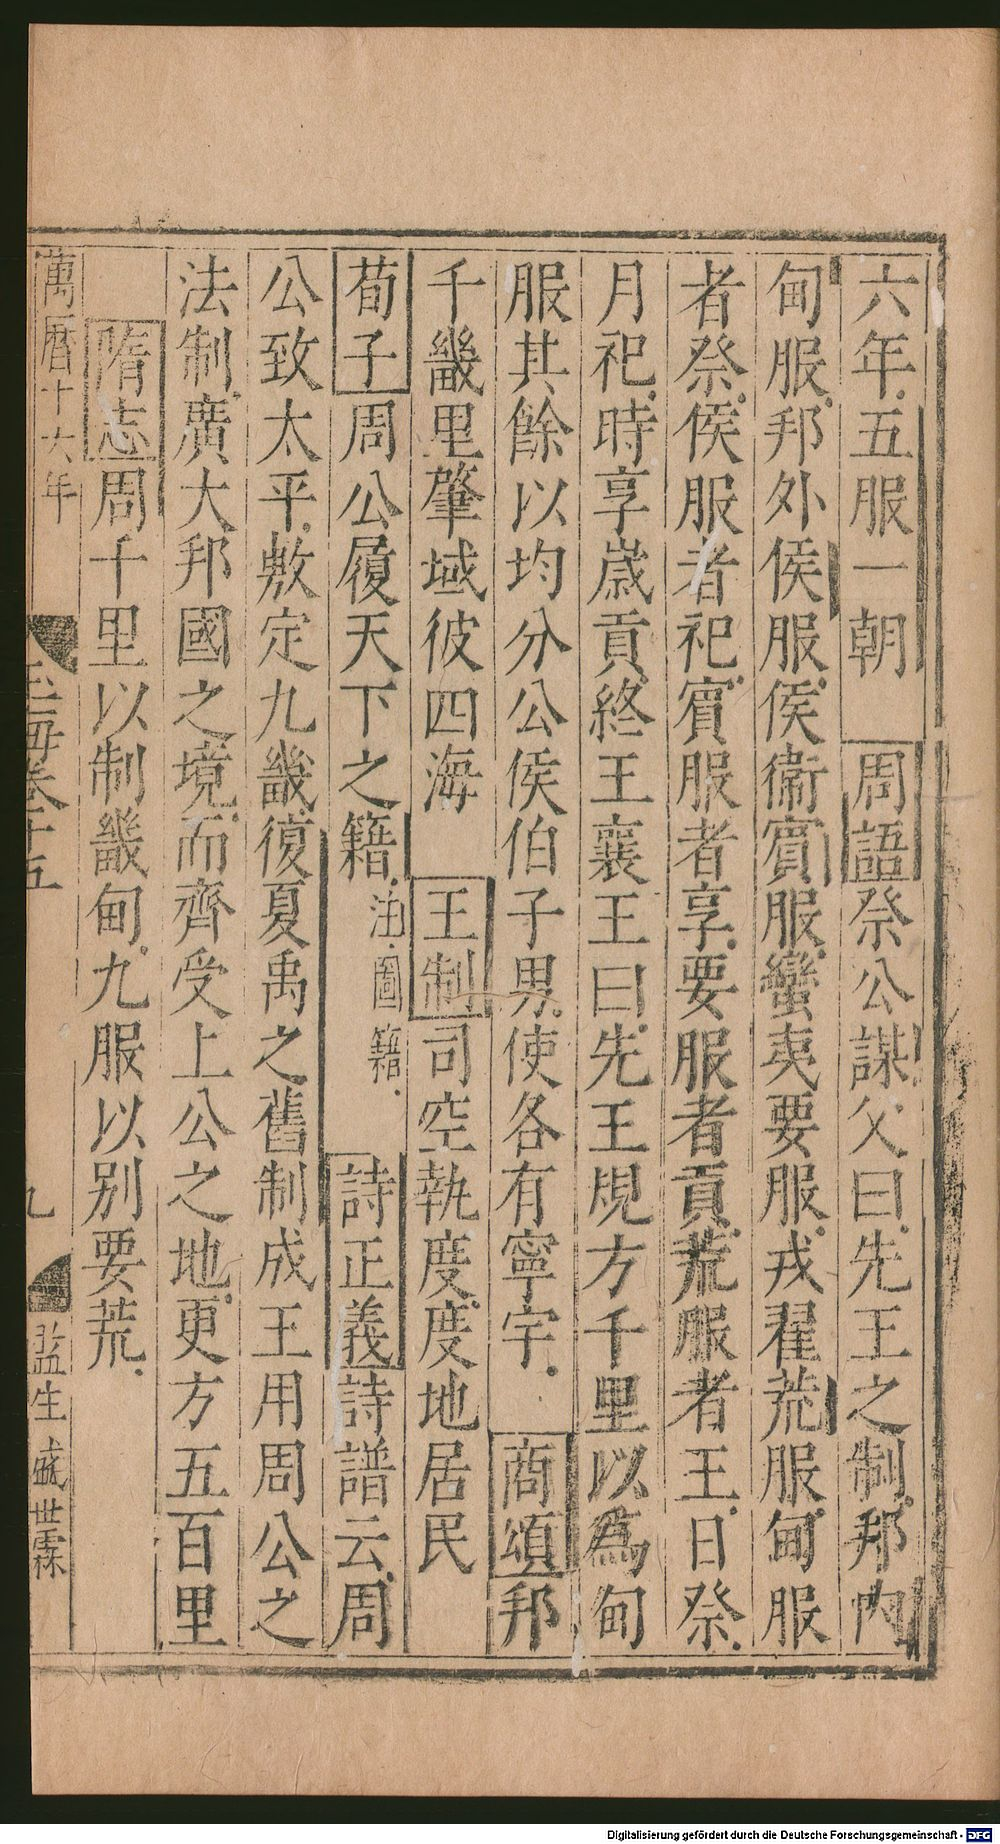 六年五服一朝　周語祭公謀父曰先王之制邦內
甸服邦外侯服侯衞賓服蠻夷要服戎翟荒服甸服
者祭侯服者祀賓服者享要服者貢荒服者王日祭
月祀時享歲貢終王襄王曰先王規方千里以為甸
服其餘以均分公侯伯子男使各有寧宇　商頌邦
千畿里肇域彼四海　王制司空執度度地居民
荀子周公履天下之籍注圖籍　詩正義詩譜云周
公致太平敷定九畿復夏禹之舊制成王用周公之
法制廣大邦國之境而齊受上公之地更方五百里
隋志周千里以制畿甸九服以别要荒
萬曆十六年　玉海卷十五　九　監生盛世霖
Digitalisierung gefördert durch die Deutsche Forschungsgemeinschaft - DFG